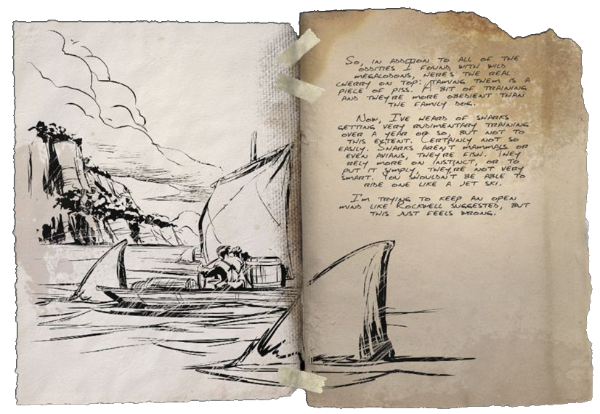 So, in addition to all of the
oddities I found with wild
megalodons, here's the real
cherry on top: taming them is a
piece of piss. A bit of training
and they're more obedient than
the family dog.
Now, I've heard of sharks
getting very rudimentary training
over a year or so, but not to
this extent. Certainly not so
easily. Sharks aren't mammals or
even avians, they're fish. They
rely more on instinct, or to
put it simply, they're not very
smart. You wouldn't be able to
ride one like a jet ski.
I'm trying to keep an open
mind like Rockwell suggested, but
this just feels wrong.